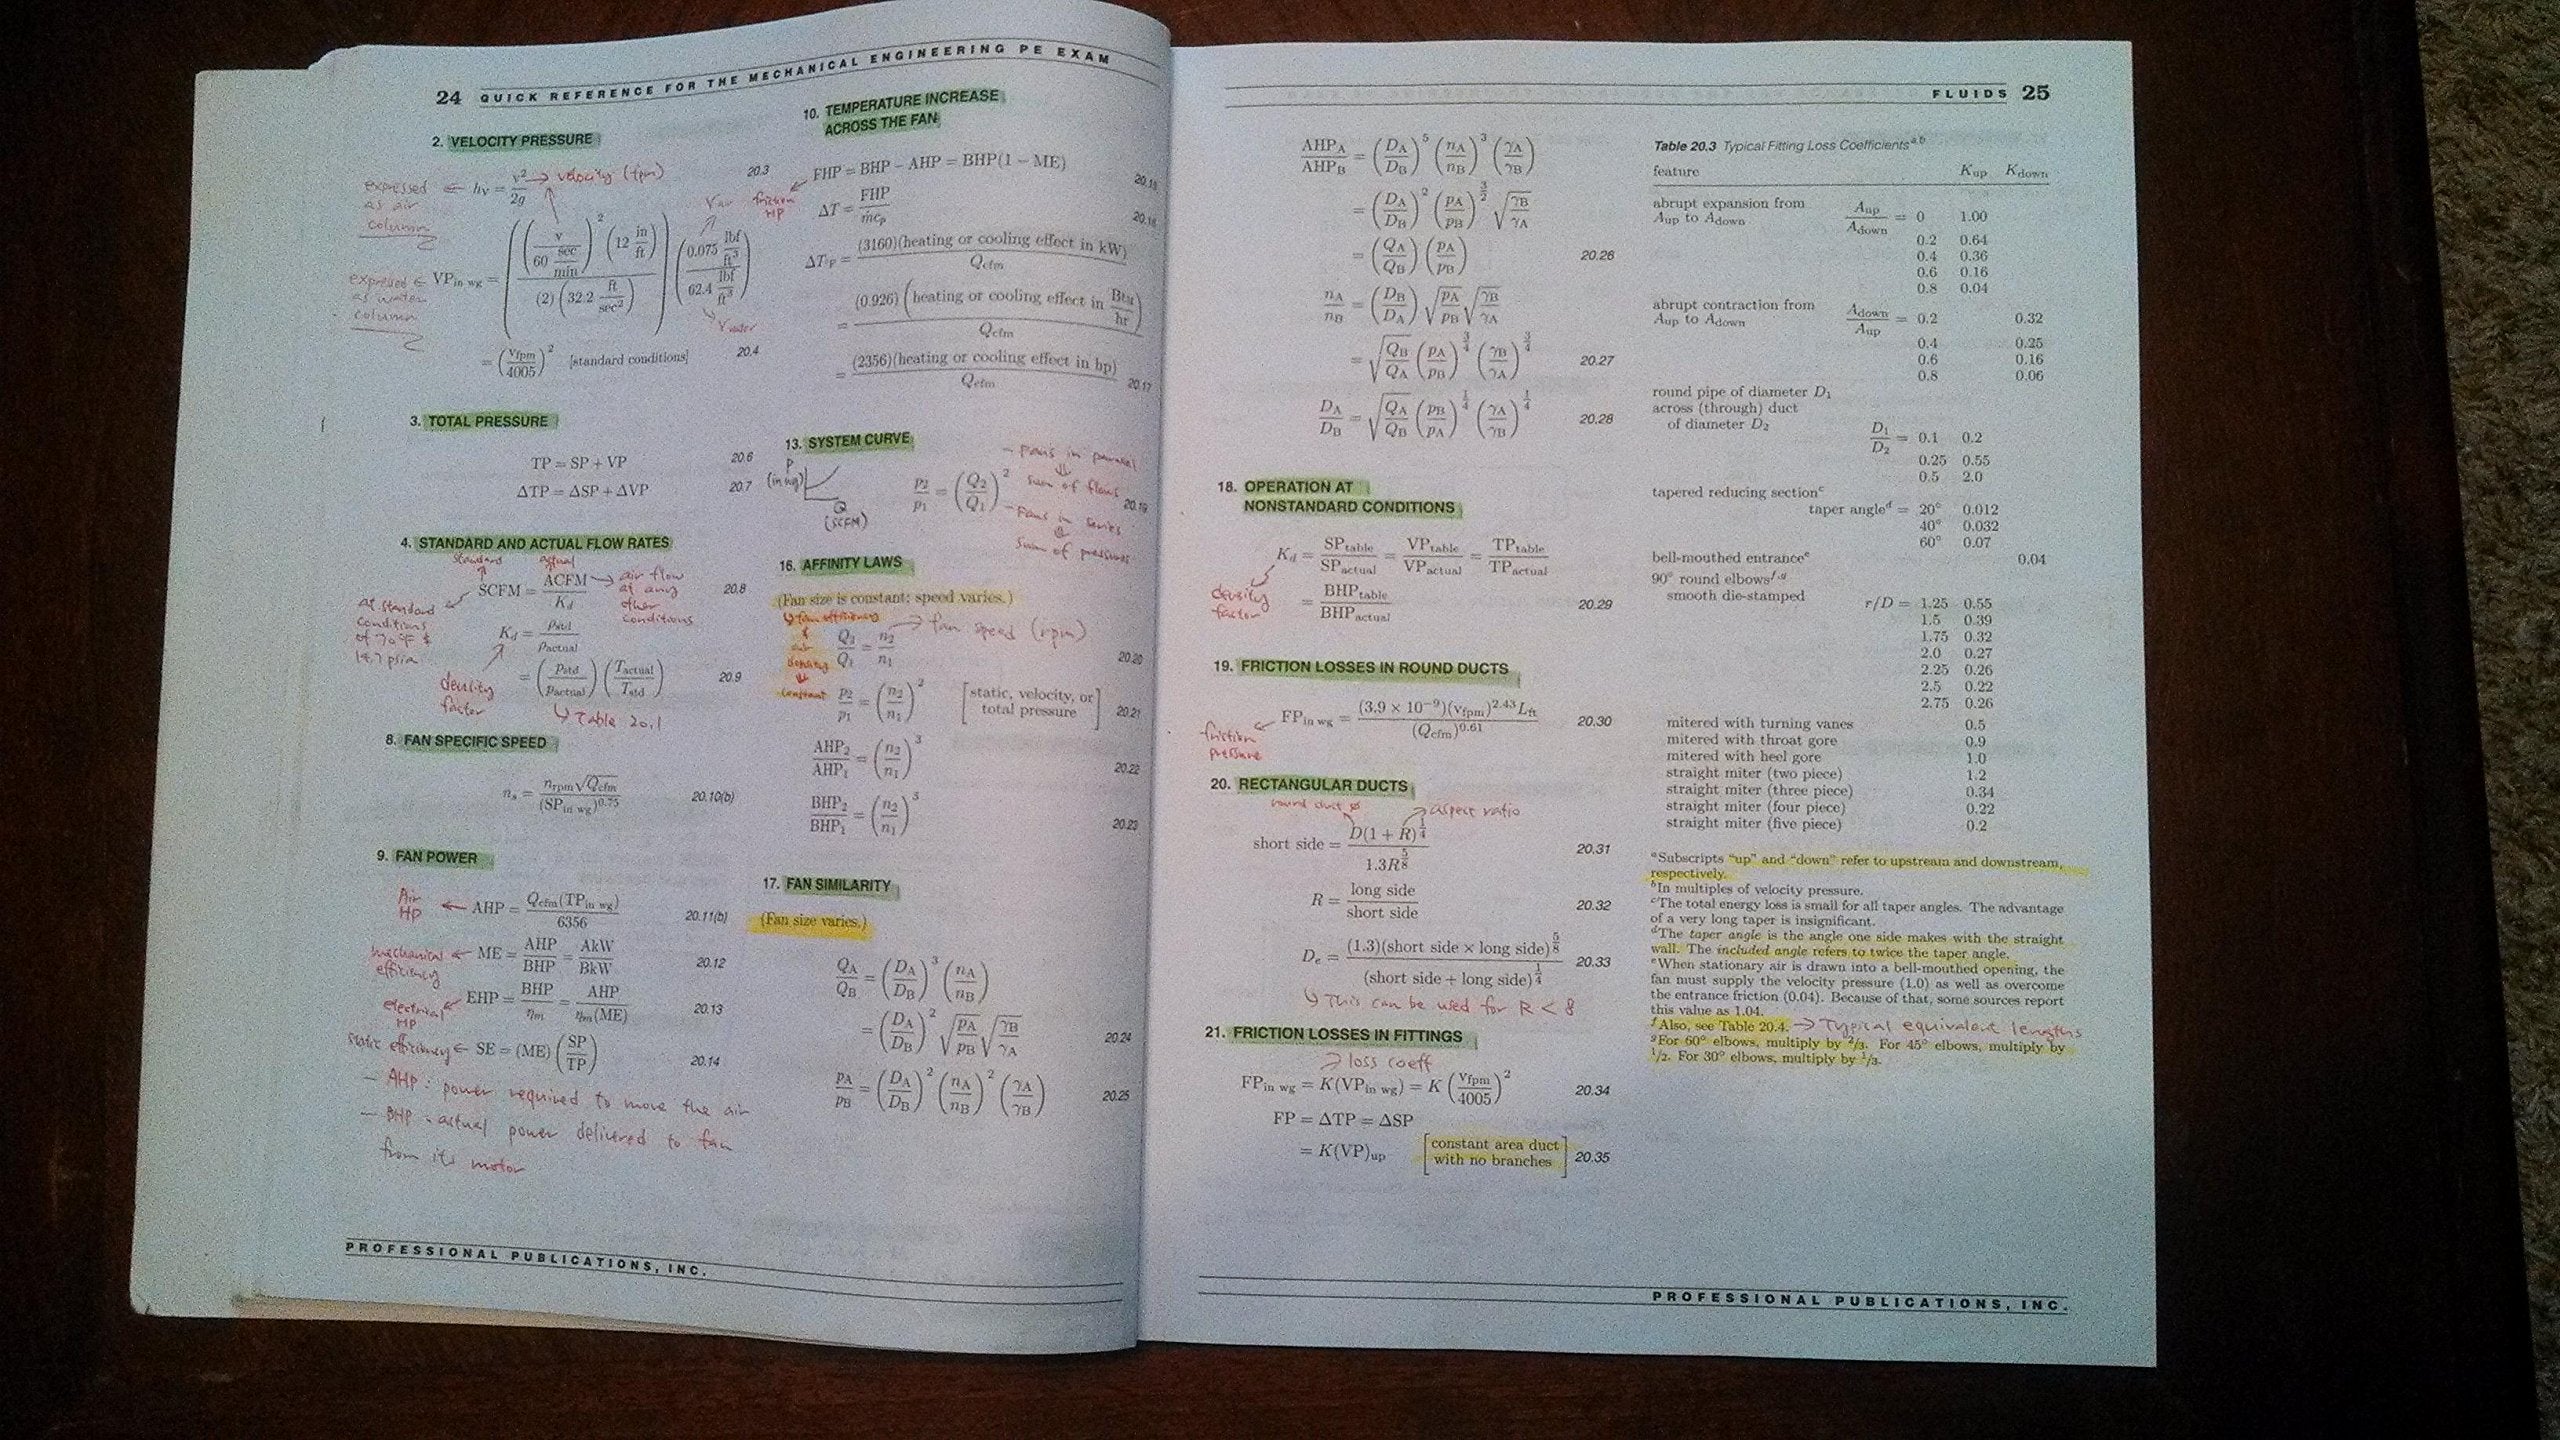 24 QUICK REFERENCE FOR THE MECHANICAL ENGINEERING PE EXAM
2. VELOCITY PRESSURE
expressed as air column ← hv = v²/2g → velocity (fpm) 20.3
expressed as water column ← VPin wg = (((v / 60 sec/min)² (12 in/ft)) / ((2)(32.2 ft/sec²))) (0.075 lbf/ft³ / 62.4 lbf/ft³)
γair
γwater
= (vfpm/4005)² [standard conditions] 20.4
3. TOTAL PRESSURE
TP = SP + VP 20.6
ΔTP = ΔSP + ΔVP 20.7
4. STANDARD AND ACTUAL FLOW RATES
standard actual
SCFM = ACFM/Kd → air flow at any other conditions 20.8
At standard conditions of 70°F & 14.7 psia
Kd = ρstd/ρactual
= (pstd/pactual) (Tactual/Tstd) 20.9
density factor
↳ Table 20.1
8. FAN SPECIFIC SPEED
ns = nrpm√Qcfm / (SPin wg)^0.75 20.10(b)
9. FAN POWER
Air HP ← AHP = Qcfm(TPin wg)/6356 20.11(b)
mechanical efficiency ← ME = AHP/BHP = AkW/BkW 20.12
electrical HP ← EHP = BHP/ηm = AHP/ηm(ME) 20.13
static efficiency ← SE = (ME) (SP/TP) 20.14
– AHP: power required to move the air
– BHP - actual power delivered to fan
from its motor
10. TEMPERATURE INCREASE
ACROSS THE FAN
FHP = BHP − AHP = BHP(1 − ME)
friction HP
ΔT = FHP/ṁcp 20.16
ΔT°F = (3160)(heating or cooling effect in kW) / Qcfm
= (0.926) (heating or cooling effect in Btu/hr) / Qcfm
= (2356)(heating or cooling effect in hp) / Qcfm 20.17
13. SYSTEM CURVE
P (in wg)
Q (SCFM)
p2/p1 = (Q2/Q1)² 20.19
– Fans in parallel
⇓
sum of flows
– Fans in series
⇓
sum of pressures
16. AFFINITY LAWS
(Fan size is constant; speed varies.)
↳ fan efficiency & air density → constant
Q2/Q1 = n2/n1 → fan speed (rpm) 20.20
p2/p1 = (n2/n1)² [static, velocity, or total pressure] 20.21
AHP2/AHP1 = (n2/n1)³ 20.22
BHP2/BHP1 = (n2/n1)³ 20.23
17. FAN SIMILARITY
(Fan size varies.)
QA/QB = (DA/DB)³ (nA/nB)
= (DA/DB)² √(pA/pB) √(γB/γA) 20.24
pA/pB = (DA/DB)² (nA/nB)² (γA/γB) 20.25
PROFESSIONAL PUBLICATIONS, INC.
FLUIDS 25
AHPA/AHPB = (DA/DB)⁵ (nA/nB)³ (γA/γB)
= (DA/DB)² (pA/pB)^3/2 √(γB/γA)
= (QA/QB) (pA/pB) 20.26
nA/nB = (DB/DA) √(pA/pB) √(γB/γA)
= √(QB/QA) (pA/pB)^3/4 (γB/γA)^3/4 20.27
DA/DB = √(QA/QB) (pB/pA)^1/4 (γA/γB)^1/4 20.28
18. OPERATION AT
NONSTANDARD CONDITIONS
Kd = SPtable/SPactual = VPtable/VPactual = TPtable/TPactual
density factor
= BHPtable/BHPactual 20.29
19. FRICTION LOSSES IN ROUND DUCTS
friction pressure ← FPin wg = (3.9 × 10⁻⁹)(vfpm)^2.43 Lft / (Qcfm)^0.61 20.30
20. RECTANGULAR DUCTS
round duct ø
aspect ratio
short side = D(1 + R)^1/4 / 1.3R^5/8 20.31
R = long side/short side 20.32
De = (1.3)(short side × long side)^5/8 / (short side + long side)^1/4 20.33
↳ This can be used for R < 8
21. FRICTION LOSSES IN FITTINGS
→ loss coeff
FPin wg = K(VPin wg) = K (vfpm/4005)² 20.34
FP = ΔTP = ΔSP
= K(VP)up [constant area duct with no branches] 20.35
Table 20.3 Typical Fitting Loss Coefficients a,b
feature Kup Kdown
abrupt expansion from Aup to Adown Aup/Adown = 0 1.00
0.2 0.64
0.4 0.36
0.6 0.16
0.8 0.04
abrupt contraction from Aup to Adown Adown/Aup = 0.2 0.32
0.4 0.25
0.6 0.16
0.8 0.06
round pipe of diameter D1
across (through) duct
of diameter D2
D1/D2 = 0.1 0.2
0.25 0.55
0.5 2.0
tapered reducing section c
taper angle d = 20° 0.012
40° 0.032
60° 0.07
bell-mouthed entrance e 0.04
90° round elbows f,g
smooth die-stamped r/D = 1.25 0.55
1.5 0.39
1.75 0.32
2.0 0.27
2.25 0.26
2.5 0.22
2.75 0.26
mitered with turning vanes 0.5
mitered with throat gore 0.9
mitered with heel gore 1.0
straight miter (two piece) 1.2
straight miter (three piece) 0.34
straight miter (four piece) 0.22
straight miter (five piece) 0.2
a Subscripts "up" and "down" refer to upstream and downstream,
respectively.
b In multiples of velocity pressure.
c The total energy loss is small for all taper angles. The advantage
of a very long taper is insignificant.
d The taper angle is the angle one side makes with the straight
wall. The included angle refers to twice the taper angle.
e When stationary air is drawn into a bell-mouthed opening, the
fan must supply the velocity pressure (1.0) as well as overcome
the entrance friction (0.04). Because of that, some sources report
this value as 1.04.
f Also, see Table 20.4. → Typical equivalent lengths
g For 60° elbows, multiply by 2/3. For 45° elbows, multiply by
1/2. For 30° elbows, multiply by 1/3.
PROFESSIONAL PUBLICATIONS, INC.